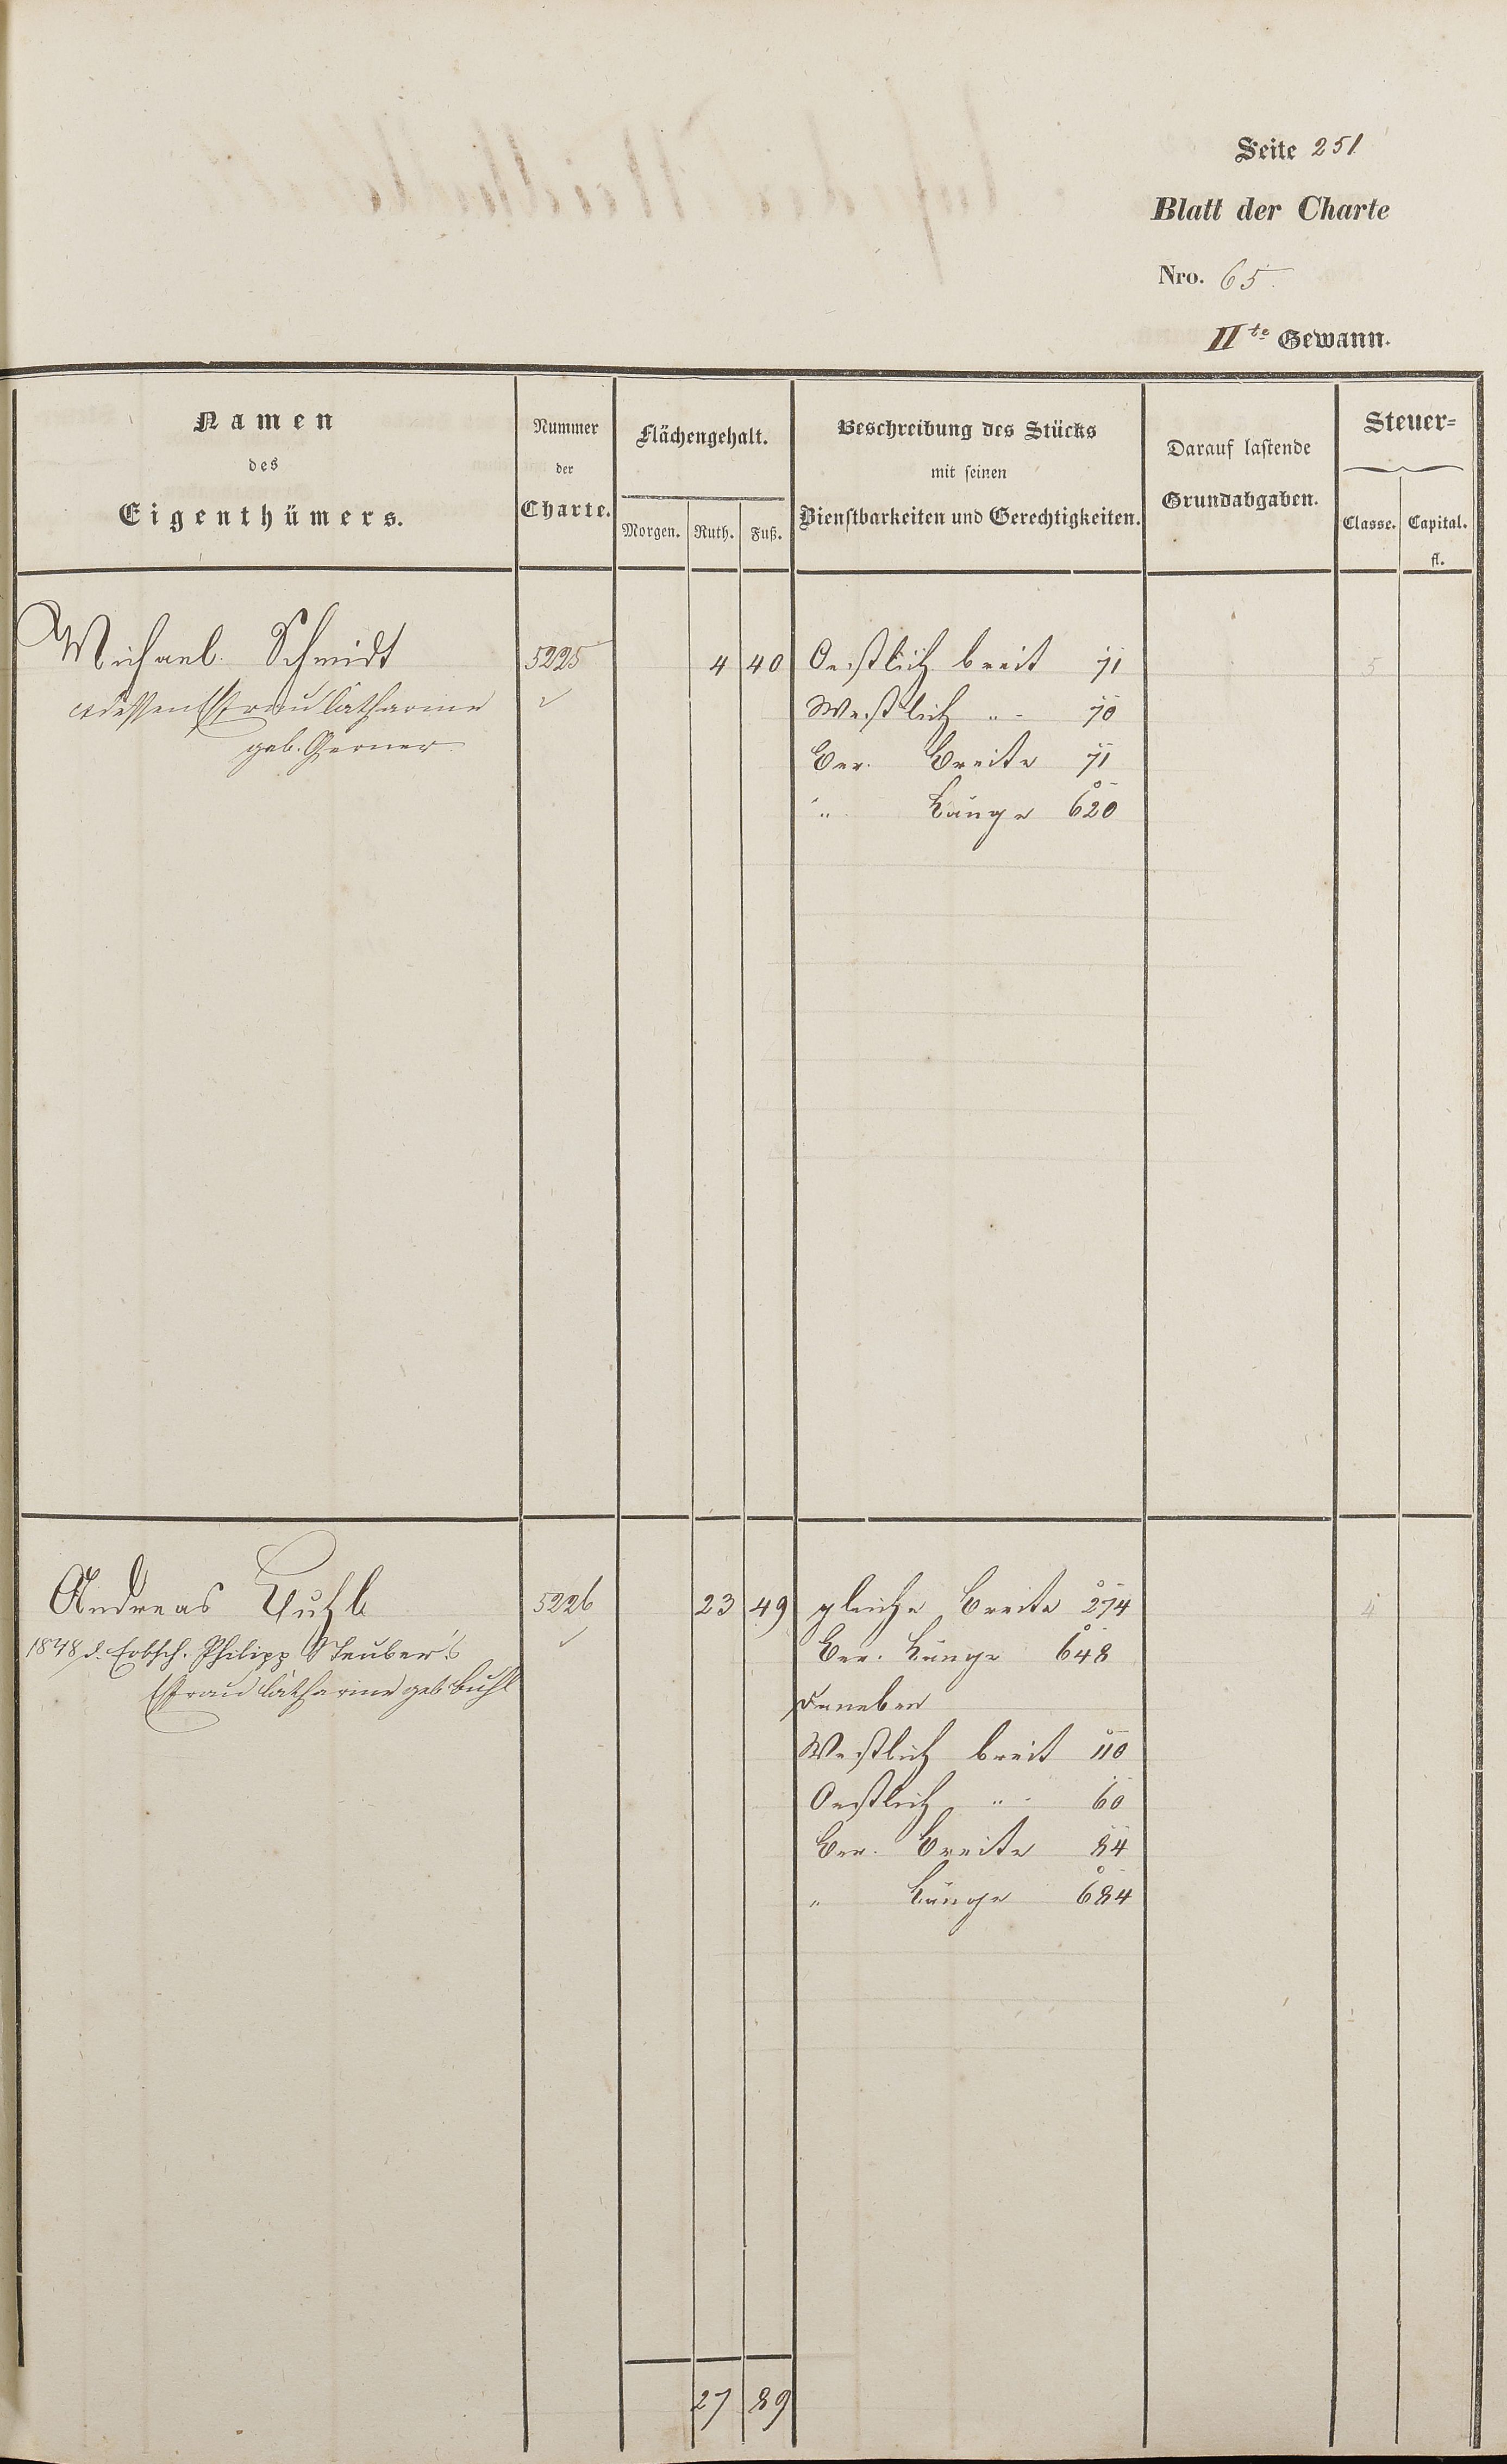 Seite 251
Blatt der Charte
Nro. 65
II te Gewann.
Namen
des
Eigenthümers.
Nummer
der
Charte.
Flächengehalt.
Morgen. Ruth. Fuß.
Beschreibung des Stücks
mit seinen
Dienstbarkeiten und Gerechtigkeiten.
Darauf lastende
Grundabgaben.
Steuer=
Classe. Capital.
fl.
Michael Schmidt 5225 4 40 Oestlich breit 71 5
dessen Ehefrau Catharine Westlich " 70
geb. Gerner Ber. Breite 71
" Länge 620
Andreas 5226 23 49 gleiche Breite 274 4
1848 d. Erbsch. Philipp Teuber's Ber. Länge 648
Ehefrau Catharine geb. Buhl Daneben
Westlich breit 110
Oestlich " 60
Ber. Breite 84
" Länge 684
27 89